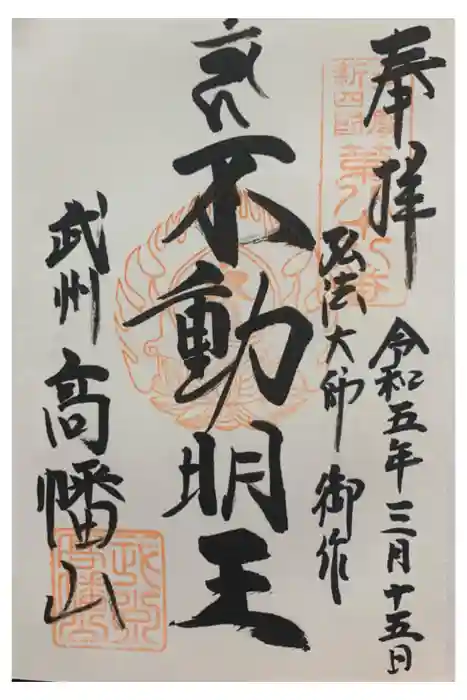 奉拝
令和五年三月十五日
新四国
弘法大師 御作
不動明王
武州 高幡山